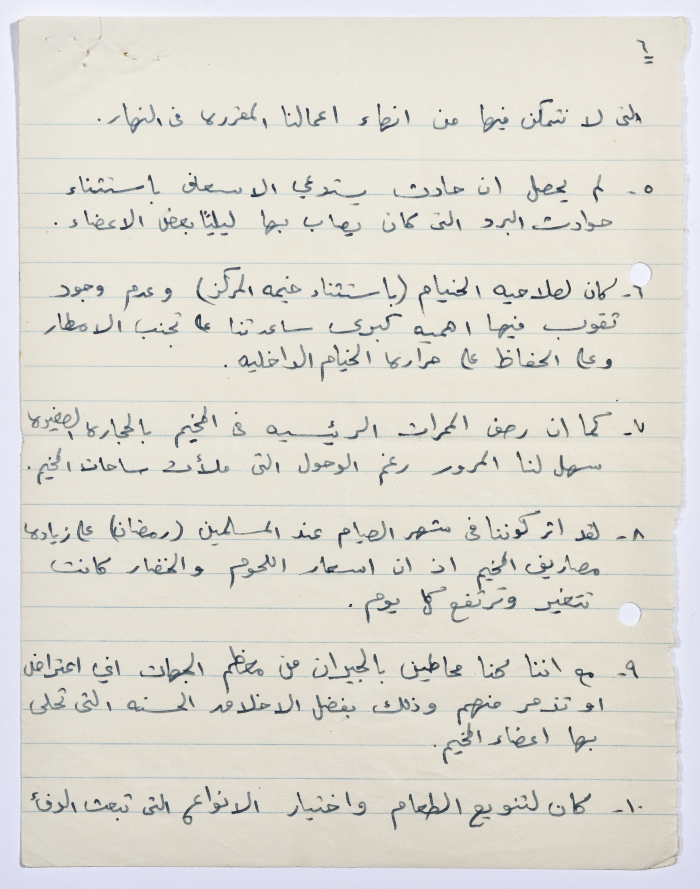 ٦
التى لا نتمكن فيها من انهاء اعمالنا المقرره فى النهار.
٥- لم يحصل ان حادث يستدعي الاسعاف باستثناء
حوادث البرد التى كان يصاب بها ليليًا بعض الاعضاء.
٦- كان لصلاحيه الخيام (باستثناء خيمه المركز) وعدم وجود
ثقوب فيها اهميه كبرى ساعدتنا على تجنب الامطار
وعلى الحفاظ على حراره الخيام الداخليه.
٧- كما ان رصف الممرات الرئيسيه فى المخيم بالحجاره الصغيره
سهل لنا المرور رغم الوحول التى ملأت ساحات المخيم.
٨- لقد اثر كوننا فى شهر الصيام عند المسلمين (رمضان) على زياده
مصاريف المخيم اذ ان اسعار اللحوم والخضار كانت
تتغير وترتفع كل يوم.
٩- مع اننا كنا محاطين بالجيران من معظم الجهات اي اعتراض
او تذمر منهم وذلك بفضل الاخلاق الحسنه التى تحلى
بها اعضاء المخيم.
١٠- كان لتنويع الطعام واختيار الانواع التى تبعث الدفئ